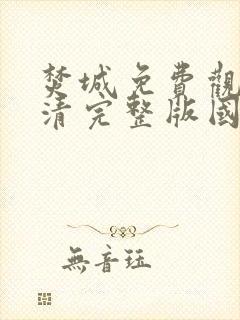 焚城免費觀
清完整版國
無音珏